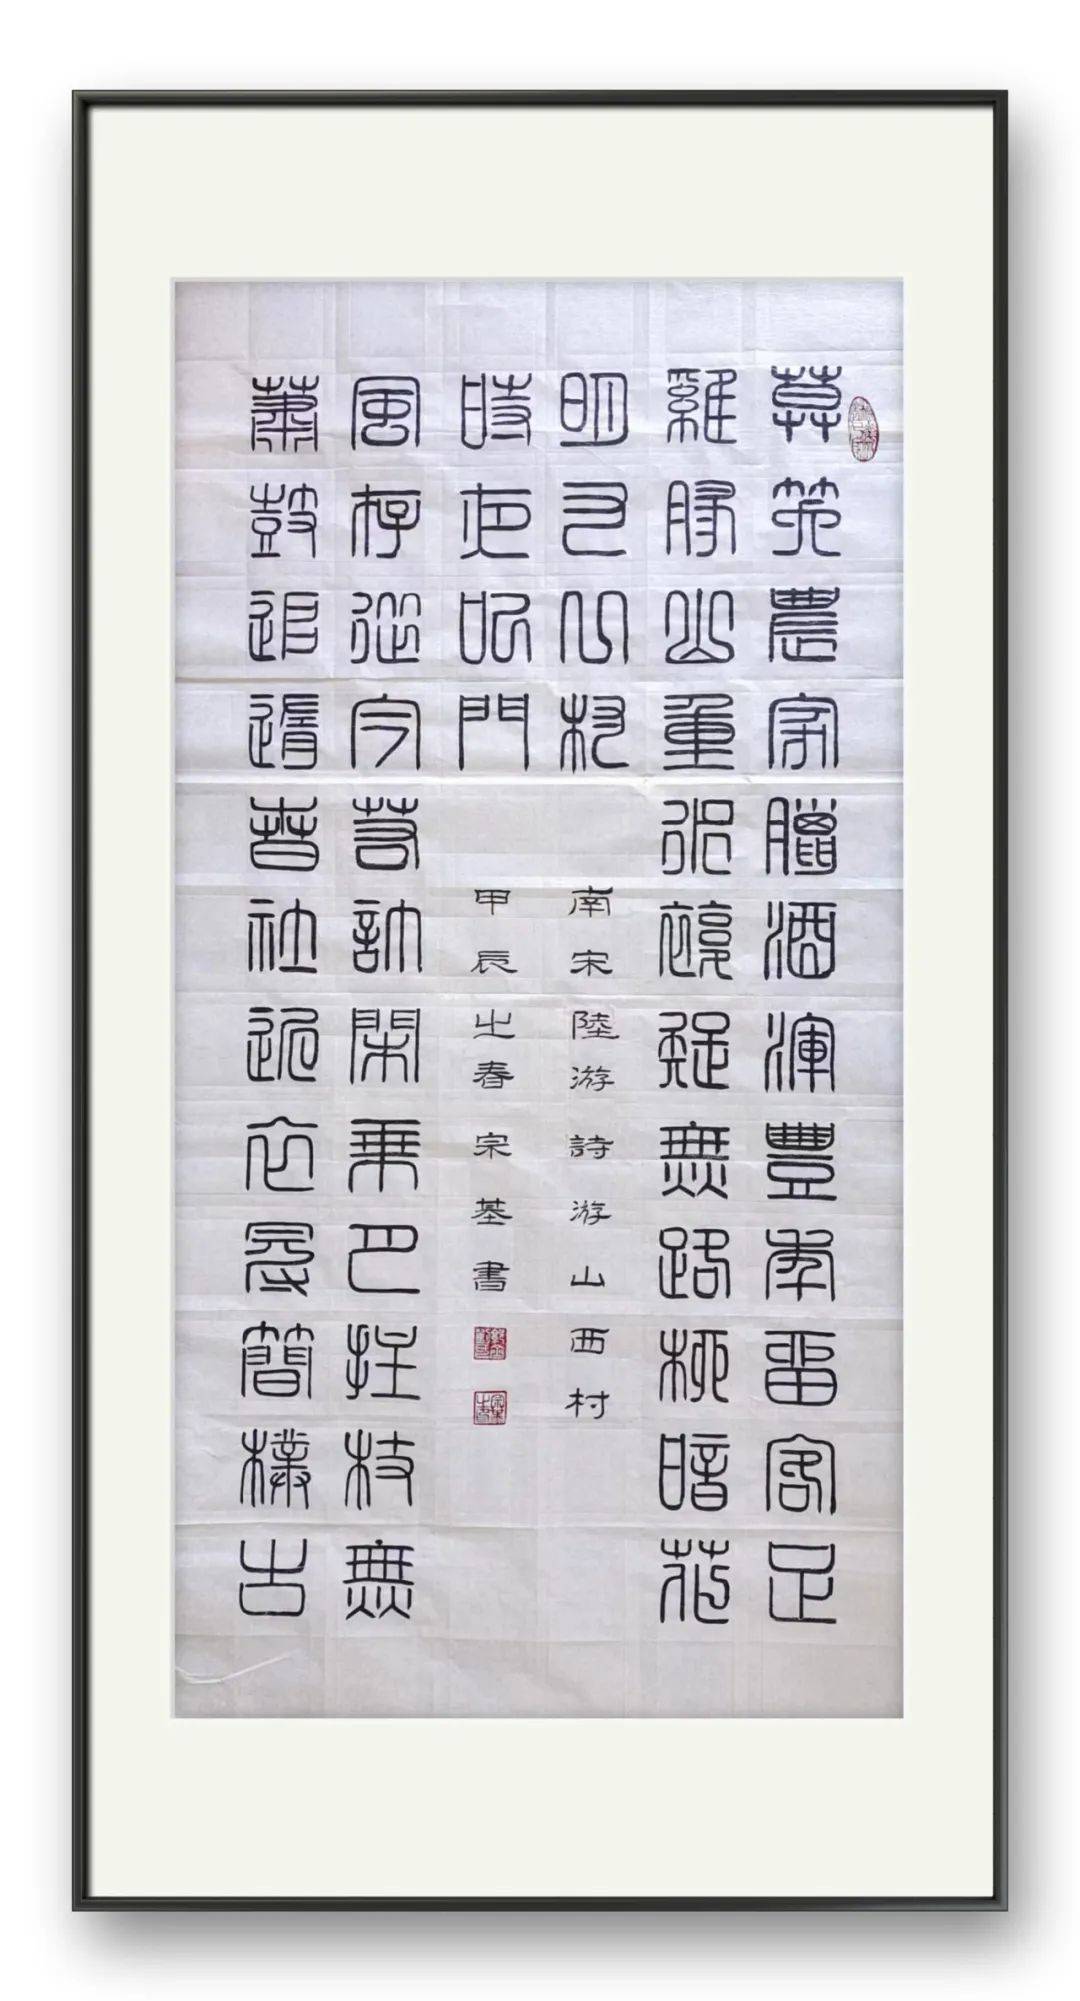 莫笑農家臘酒渾豐年留客足
雞豚山重水複疑無路柳暗花
明又一村
簫鼓追隨春社近衣冠簡樸古
風存從今若許閑乘月拄杖無
時夜叩門
南宋陸游詩游山西村
甲辰之春宋基書